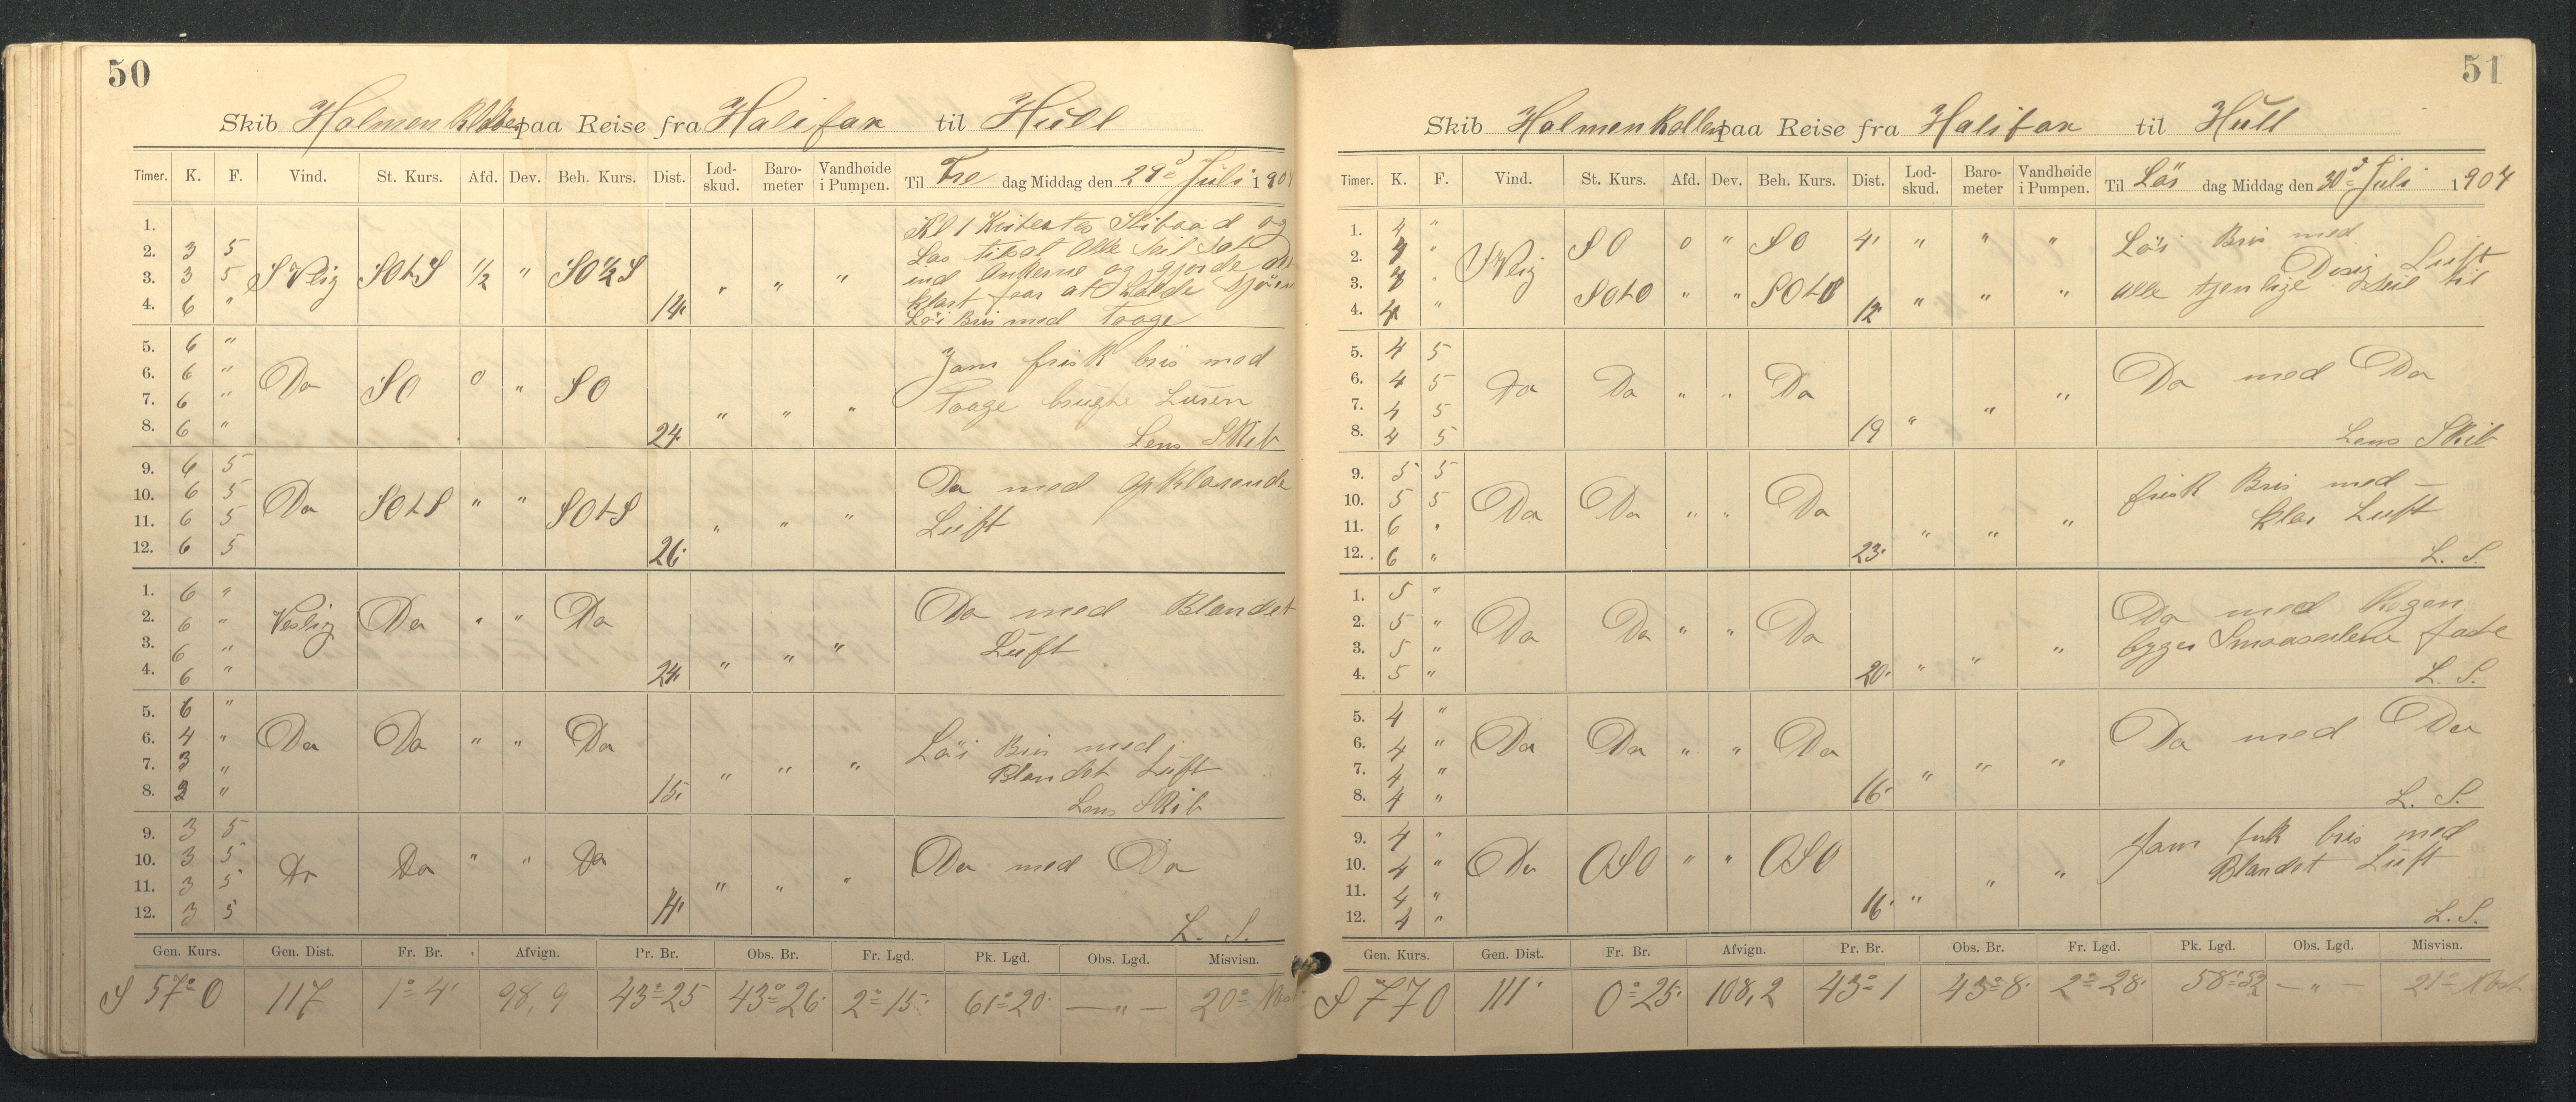 50
Skib Holmenkollen paa Reise fra Halifax til Hull
Timer. K. F. Vind. St. Kurs. Afd. Dev. Beh. Kurs. Dist. Lod-skud. Baro-meter Vandhøide i Pumpen. Til Fre dag Middag den 29d Juli 1904
1. Kl 1 Skibaad og
2. 3 5 Alle Seil Sat
3. 3 5 S Vlig SOtS 1/2 " SO 1/2 S " " " ind Ankerne og gjorde
4. 6 " 14. klart faar at
Löi Bris med Taage
5. 6 " Jam frisk bris med
6. 6 " Do SO 0 " SO
7. 6 " " " " Taage brugte Luren
8. 6 " 24. Lens Skib
9. 6 5 Do med opklarende
10. 6 5 Do SOtS " " SOtS
11. 6 5 " " " Luft
12. 6 5 26.
1. 6 " Do med Blandet
2. 6 " Vestlig Do " " Do
3. 6 " " " " Luft
4. 6 " 24.
5. 6 "
6. 4 " Do Do " " Do Löi Bris med
7. 3 " " " " Blandet Luft
8. 2 " 15. Lens Skib
9. 3 5
10. 3 5 Do Do " " Do Do med Do
11. 3 5 " " "
12. 3 5 14. L. S.
Gen. Kurs. Gen. Dist. Fr. Br. Afvign. Pr. Br. Obs. Br. Fr. Lgd. Pk. Lgd. Obs. Lgd. Misvisn.
S 57° O 117 1° 4' 98,9 43° 25 43° 26' 2° 15' 61° 20' — " — 20°
51
Skib Holmenkollen paa Reise fra Halifax til Hull
Timer. K. F. Vind. St. Kurs. Afd. Dev. Beh. Kurs. Dist. Lod-skud. Baro-meter Vandhøide i Pumpen. Til Lös dag Middag den 30d Juli 1904
1. 4 " SO 0 " SO 4' " " " Löi Bris med
2. 4 " S Vlig Disig Luft
3. 4 " SOtO " " SOtO " " " alle tjenlige Seil til
4. 4 " 12'
5. 4 5
6. 4 5 Do Do " " Do Do med Do
7. 4 5 " " "
8. 4 5 19 Lens Skib
9. 5 5 frisk Bris med —
10. 5 5 Do Do " " Do
11. 6 " " " " klar Luft
12. 6 " 23. L. S.
1. 5 " Do med Regen
2. 5 " Do Do " " Do byger Smaaseilene faste
3. 5 " " " "
4. 5 " 20. L. S.
5. 4 "
6. 4 " Do Do " " Do Do med Do
7. 4 " " " "
8. 4 " 16. L. S.
9. 4 " Jam frisk bris med
10. 4 " Do OSO " " OSO Blandet Luft
11. 4 " " " "
12. 4 " 16. L. S.
Gen. Kurs. Gen. Dist. Fr. Br. Afvign. Pr. Br. Obs. Br. Fr. Lgd. Pk. Lgd. Obs. Lgd. Misvisn.
S 77 O 111' 0° 25' 108,2 43° 1 43° 8' 2° 28' 58° 52 — " — 21° Vest